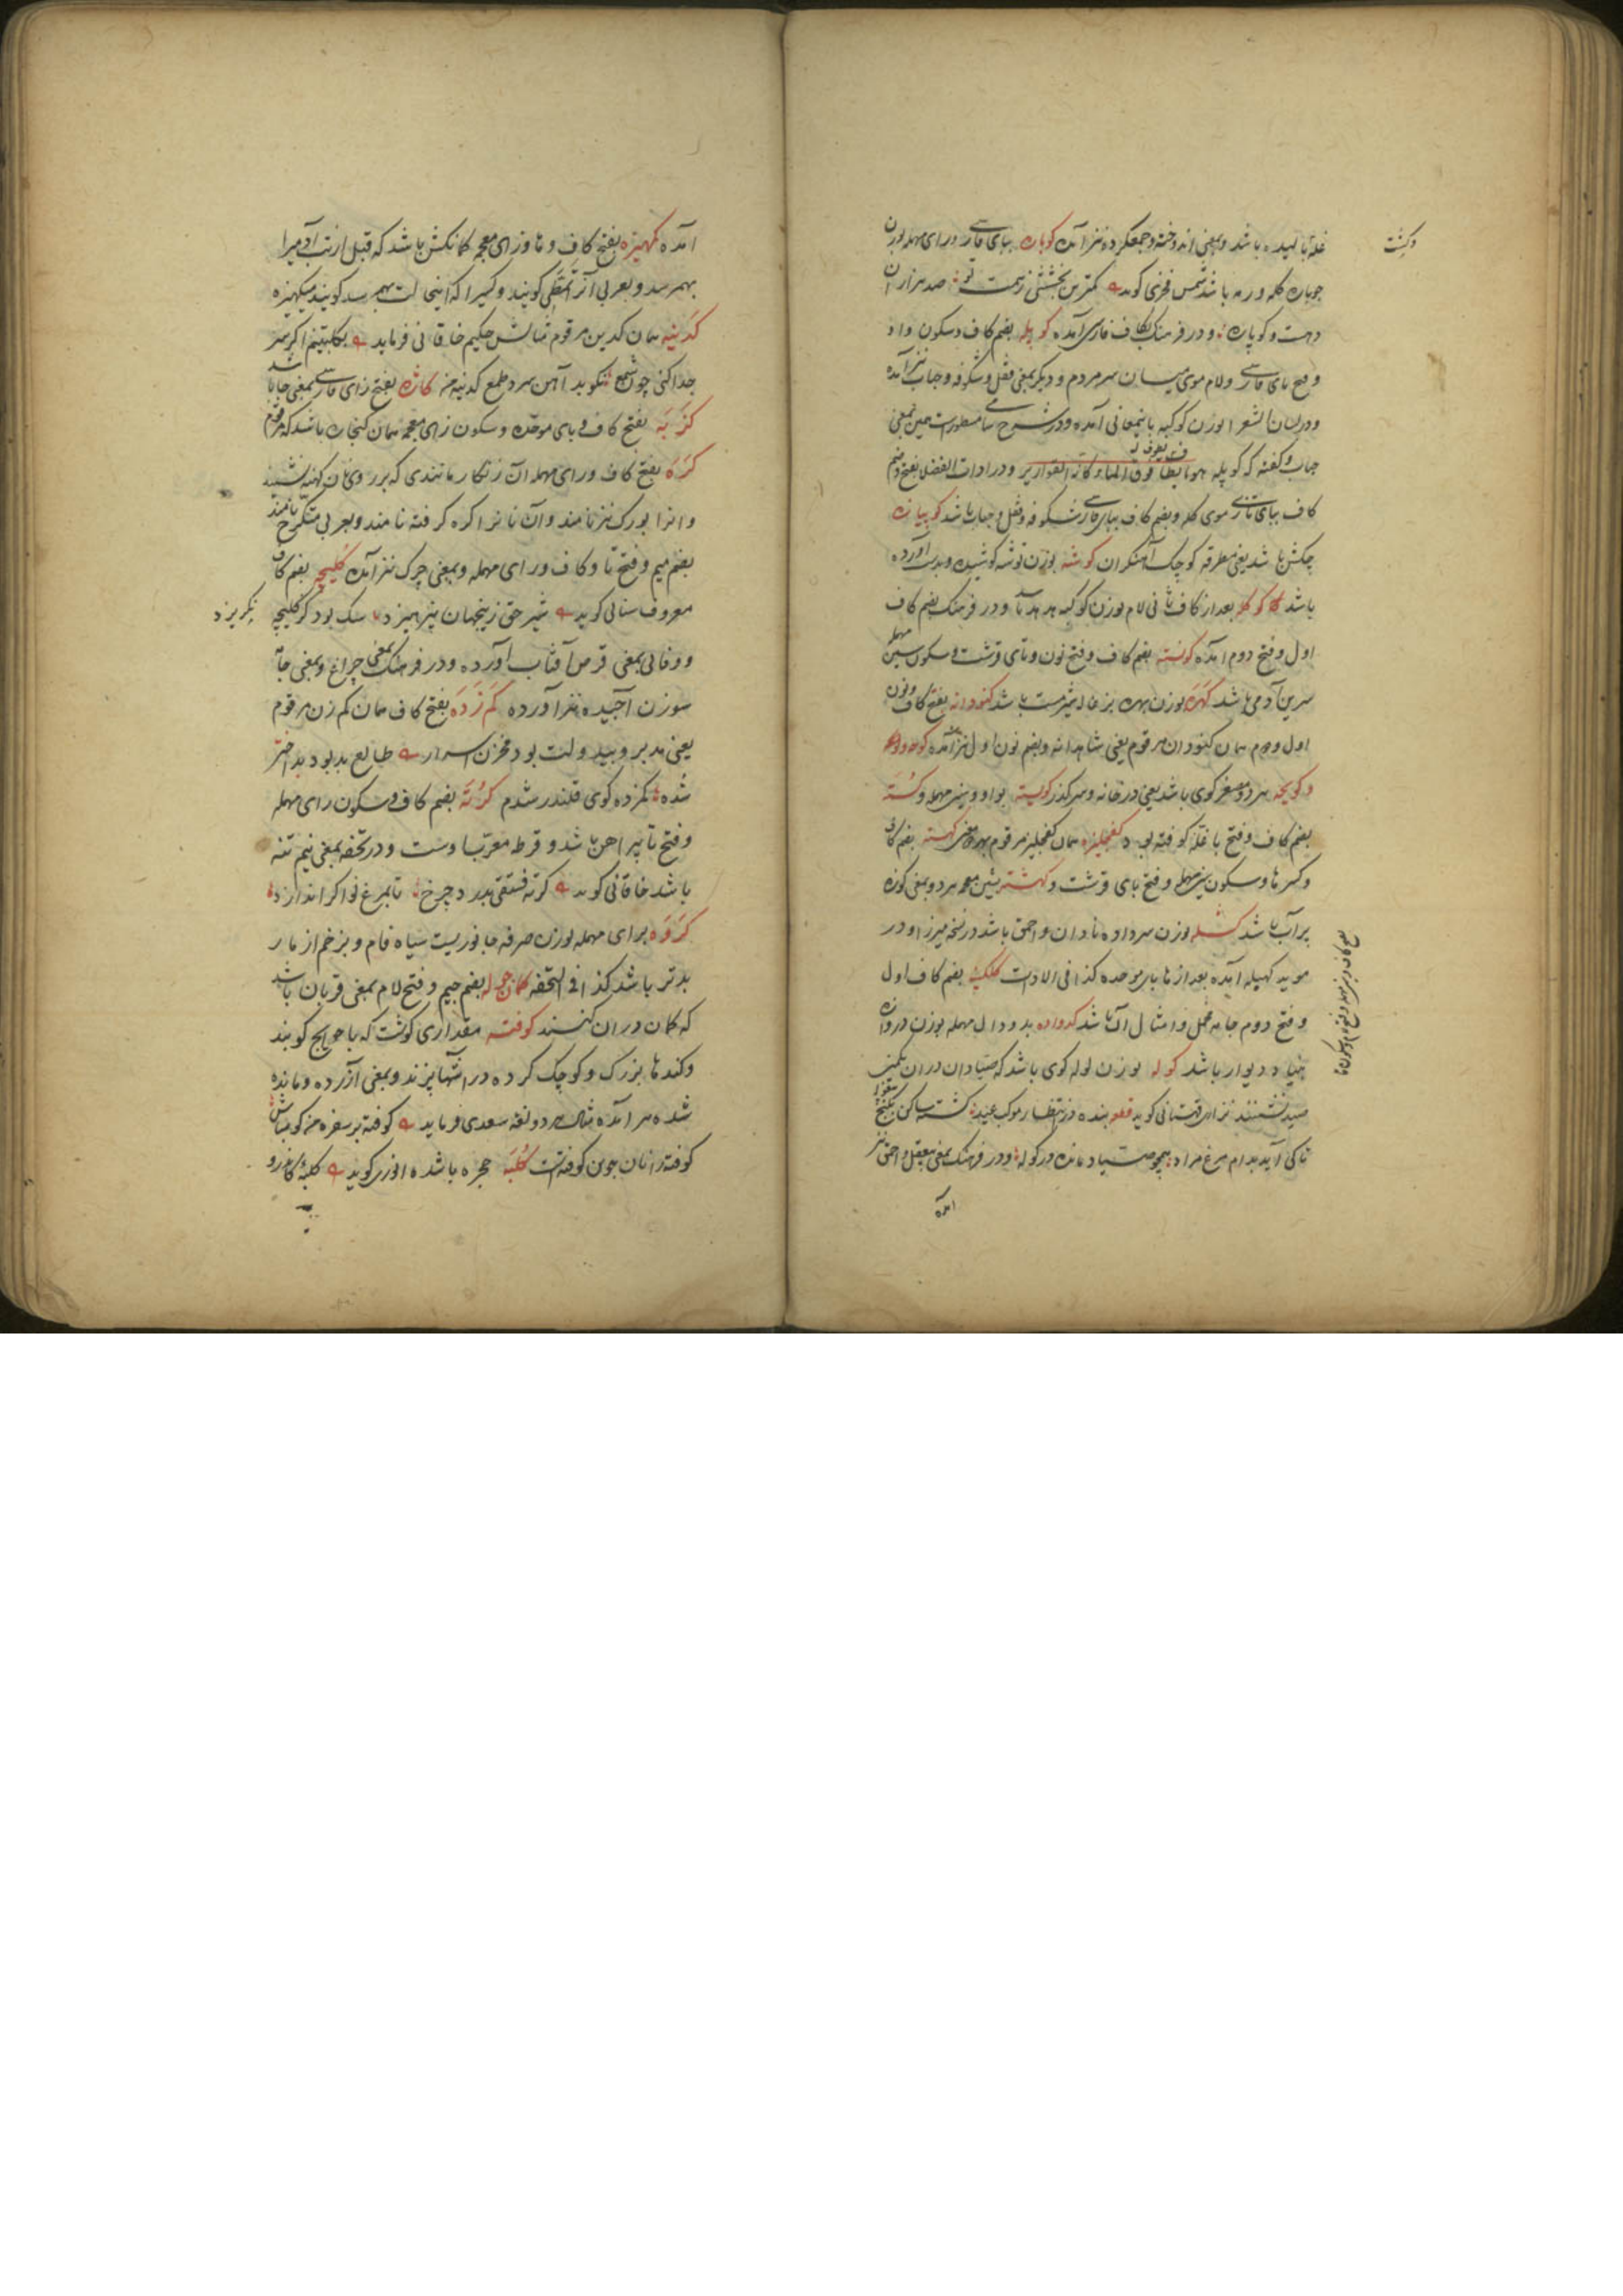 غله نا لیده باشد وبمعنی اندوخته وجمعکرده نیز آمده کوپاره ببای فارسی ورای مهمله بوزن
جوباره کله ورمه باشد شمس فخری کوید کمترین بخششی زهمت تو صد هزاران
دهست وکوپاره ودر فرهنک بکاف فارسی آمده کوپله بضم کاف وسکون واو
وفتح بای فارسی ولام موی میان سر مردم ودیکر بمعنی قفل وشکوفه وحباب نیز آمده
ودر لسان الشعرا بوزن کوکبه باینمعانی آمده ودر شرح سامی مسطورست بهمین معنی
حباب وکفته که کوپله هو ما یطفا فوق الماء وکانه القواریر ودر ادات الفضلا بفتح وضم
کاف ببای تازی موی کله وبضم کاف ببای فارسی شکوفه وقفل وحباب باشد کوبیازه
چکش باشد یعنی مطرقه کوچک آهنکران کوشه بوزن توشه کوشیده وبدست آورده
باشد کوکله بعد از کاف ثانی لام بوزن کوکبه هدهد باشد ودر فرهنک بضم کاف
اول وفتح دوم آمده کونسته بضم کاف وفتح نون وتای قرشت وسکون سین مهمله
سرین آدمی باشد کهره بوزن بهره بزغاله شیرمست باشد کنودانه بفتح کاف ونون
اول ودوم همان کنودان مرقوم یعنی شاهدانه وبضم نون اول نیز آمده
وکویچه هر دو مصغر کوی باشد یعنی در خانه وسر کذر کویسته بواو وسین مهمله وکسته
بضم کاف وفتح با غله کوفته بود کفچلیزه همان کفچلیز مرقوم کهسته بضم کاف
وکسر ها وسکون سین مهمله وفتح تای قرشت وکهشته بشین معجمه هر دو بمعنی کوزه
پر آب باشد کشله بوزن سرداده نادان واحمق باشد در نسخه میرزا ودر
موید کهیله آمده بعد از ها بای موحده کذا فی الادات کلکینه بضم کاف اول
وفتح دوم جامه مخمل وامثال آن باشد کدواده بدو دال مهمله بوزن دروازه
بنیاد دیوار باشد کوله بوزن لوله کوی باشد که صیادان در آن بکمین
صید نشینند نزاری قهستانی کوید قطعه بنده در انتظار موکب عید کشته ساکن بکنج
تا کی آید بدام مرغ مراد همچو صیاد مانده در کوله ودر فرهنک بمعنی بیعقل واحمق نیز
آمده
آمده کهیزه بفتح کاف وها وزای معجمه کمانکش باشد که قبل از تب آدمیرا
بهم رسد وبعربی آنرا تمطی کویند وکسیرا که این حالت بهم رسد کویند میکهیزه
کدینه همان کدین مرقوم مثالش حکیم خاقانی فرماید بکلبتینم اکر سر
جدا کنی چون شمع نکوبد آهن سرد طمع کدینه من کاژه بفتح زای فارسی بمعنی جا باشد
کزبه بفتح کاف وبای موحده وسکون زای معجمه همان کنجاره باشد که مرقوم
کره بفتح کاف ورای مهمله آن زنکار مانندی که بر روی نان کهنه نشیند
وانرا بورک نیز نامند وآن نانرا کره کرفته نامند وبعربی متکرج نامند
بضم میم وفتح تا وکاف ورای مهمله وبمعنی چرک نیز آمده کلیچه بضم کاف
معروف سنائی کوید شیر حق زینجهان بپرهیزد سک بود کز کلیچه نکریزد
ووفائی بمعنی قرص آفتاب آورده ودر فرهنک بمعنی چراغ وبمعنی جامه
سوزن آجیده نیز آورده کم زده بفتح کاف همان کم زن مرقوم
یعنی مدبر وبیدولت بود مخزن اسرار طالع بد بود بد اختر
شده کمزده کوی قلندر شدم کرته بضم کاف وسکون رای مهمله
وفتح تا پیراهن باشد وقرطه معرب اوست ودر تحفه بمعنی نیم تنه
باشد خاقانی کوید کرته فستقی بدرد چرخ تا بمرغ نوا کر اندازد
کروه برای مهمله بوزن صرفه جانوریست سیاه فام وبزخم از مار
بدتر باشد کذا فی التحفه کمان جوله بضم جیم وفتح لام بمعنی قربان باشد
که کمان در ان کنند کوفته مقداری کوشت که با حوایج کوبند
وکندها بزرک وکوچک کرده در آشها پزند وبمعنی آزرده ومانده
شده هم آمده مثال هر دو لغه سعدی فرماید کوفته بر سفره من کو مباش
کوفته را نان جوین کوفتست کلبه حجره باشد انوری کوید کلبه کاندرو
به